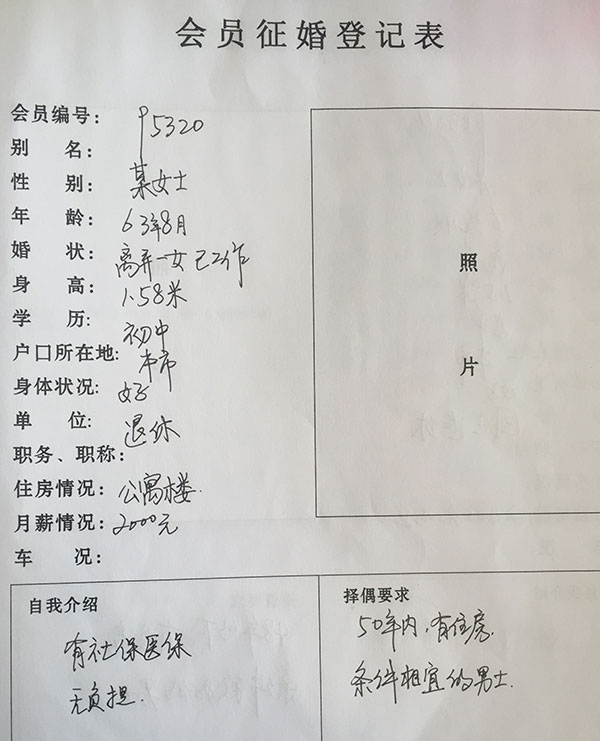 会员征婚登记表
会员编号： P5320
别 名：
性 别： 某女士
年 龄： 63年8月
婚 状： 离弃一女已工作
身 高： 1.58米
学 历： 初中
户口所在地： 本市
身体状况： 好
单 位： 退休
职务、职称：
住房情况： 公寓楼.
月薪情况： 2000元
车 况：
照
片
自我介绍
有社保医保
无负担.
择偶要求
50年内，有住房.
条件相宜的男士.